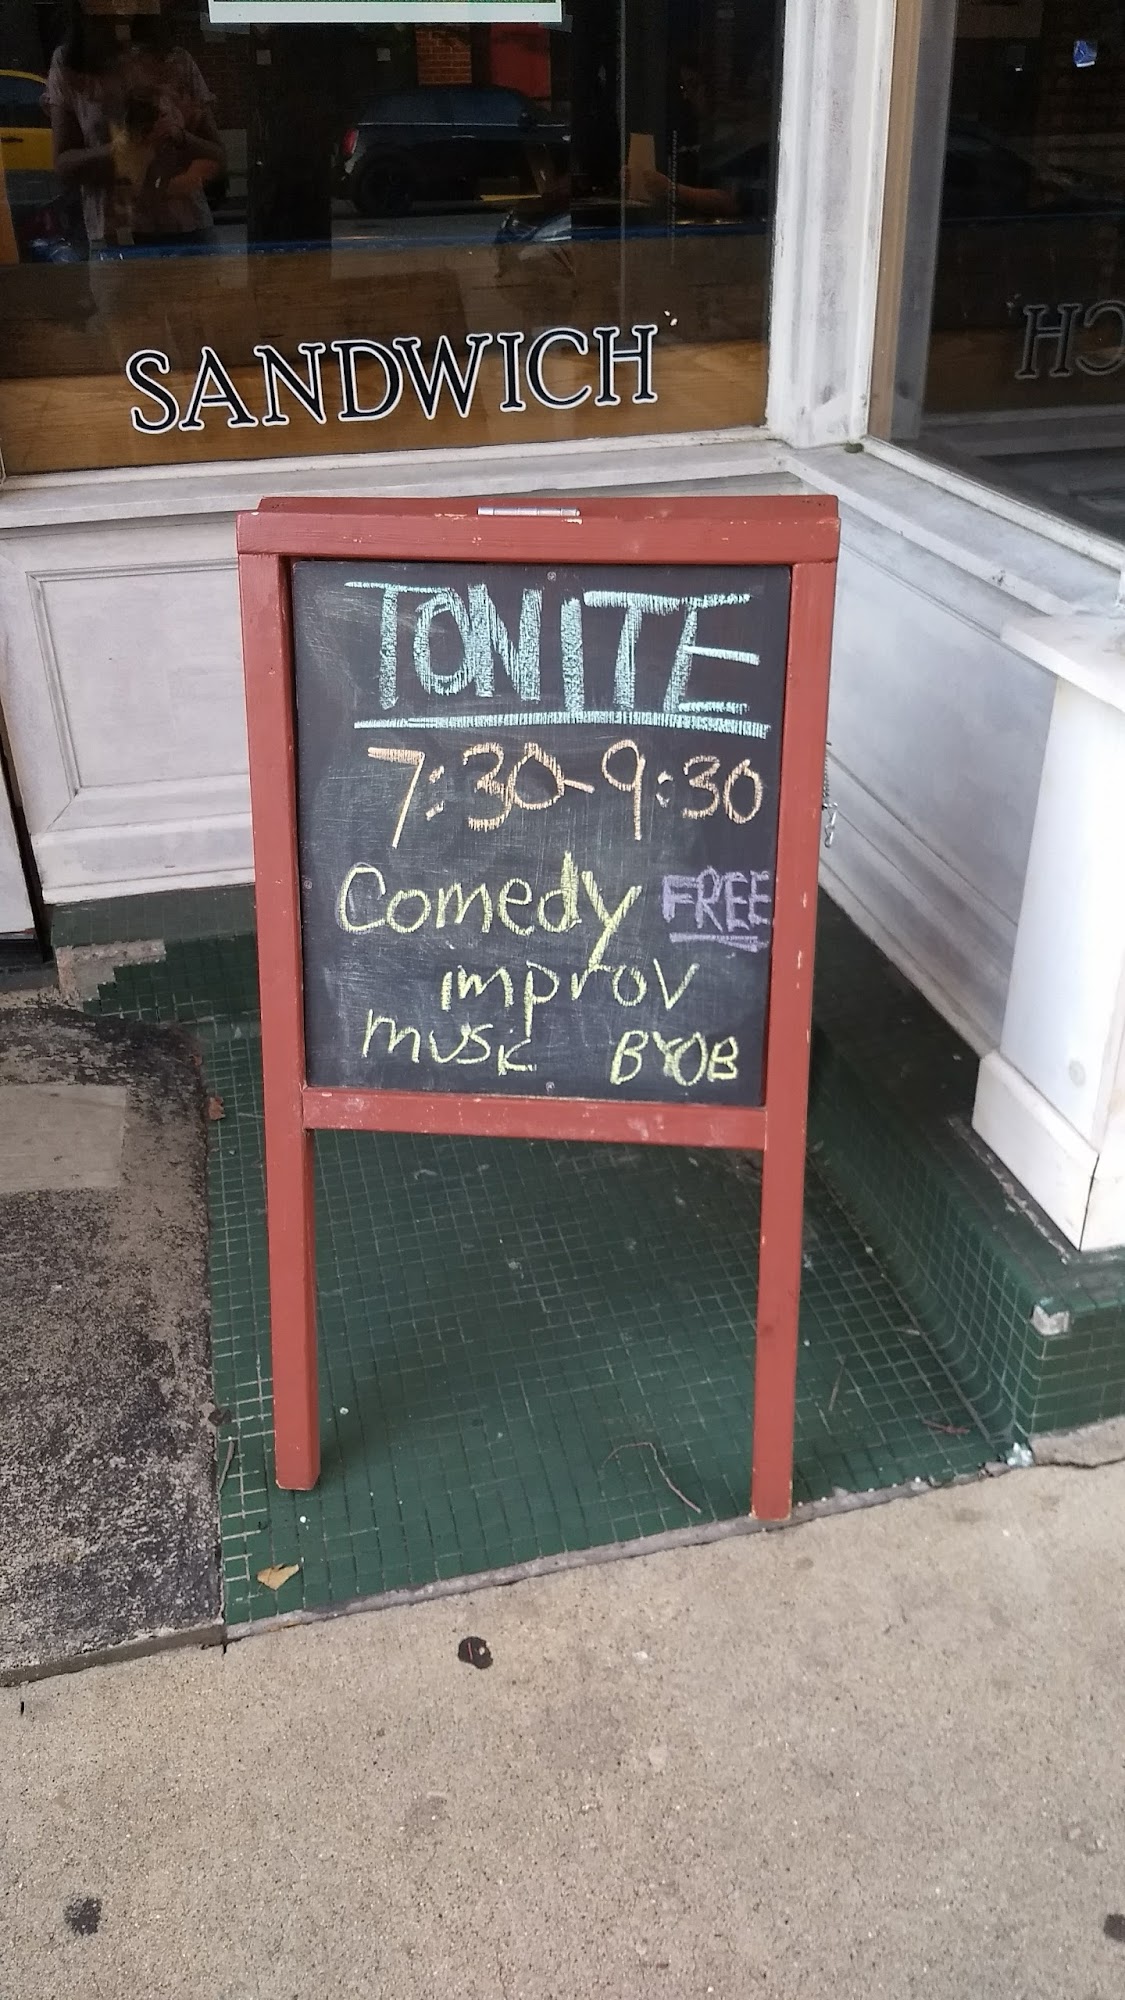 SANDWICH
CH
TONITE
7:30-9:30
Comedy FREE
improv
music BYOB